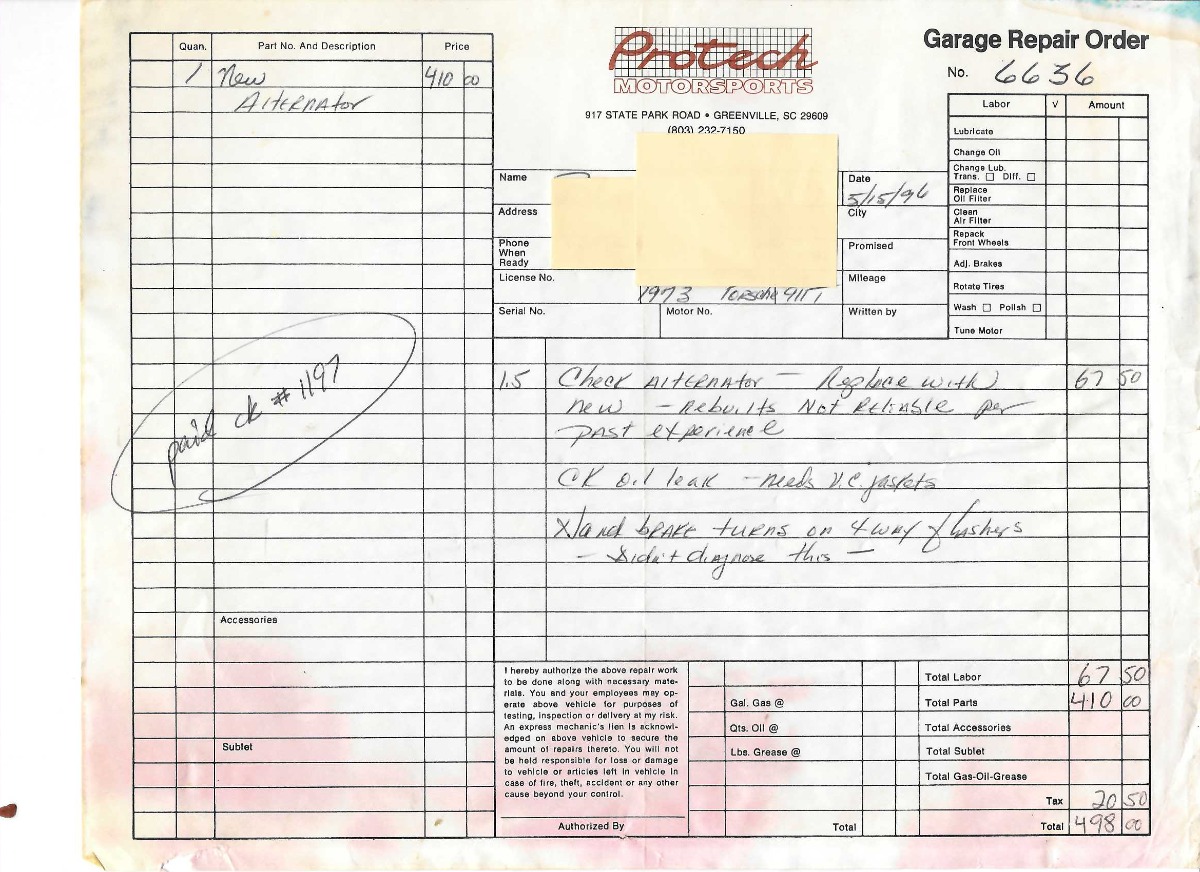 Quan. Part No. And Description Price
1 New 410 00
Alternator
paid ck #1197
Accessories
Sublet
Protech
MOTORSPORTS
917 STATE PARK ROAD • GREENVILLE, SC 29609
(803) 232-7150
Garage Repair Order
No. 6636
Name
Date
5/15/96
Address
City
Phone
When
Ready
Promised
License No.
Mileage
1973 Porsche 911T
Serial No. Motor No. Written by
Labor √ Amount
Lubricate
Change Oil
Change Lub.
Trans. □ Diff. □
Replace
Oil Filter
Clean
Air Filter
Repack
Front Wheels
Adj. Brakes
Rotate Tires
Wash □ Polish □
Tune Motor
1.5 Check Alternator - Replace with 67 50
new - Rebuilts Not Reliable per
past experience
CK oil leak - needs V.C. gaskets
Hand brake turns on 4 way flashers
- Didn't diagnose this -
I hereby authorize the above repair work
to be done along with necessary mate-
rials. You and your employees may op-
erate above vehicle for purposes of
testing, inspection or delivery at my risk.
An express mechanic's lien is acknowl-
edged on above vehicle to secure the
amount of repairs thereto. You will not
be held responsible for loss or damage
to vehicle or articles left in vehicle in
case of fire, theft, accident or any other
cause beyond your control.
Authorized By
Gal. Gas @
Qts. Oil @
Lbs. Grease @
Total
Total Labor 67 50
Total Parts 410 00
Total Accessories
Total Sublet
Total Gas-Oil-Grease
Tax 20 50
Total 498 00